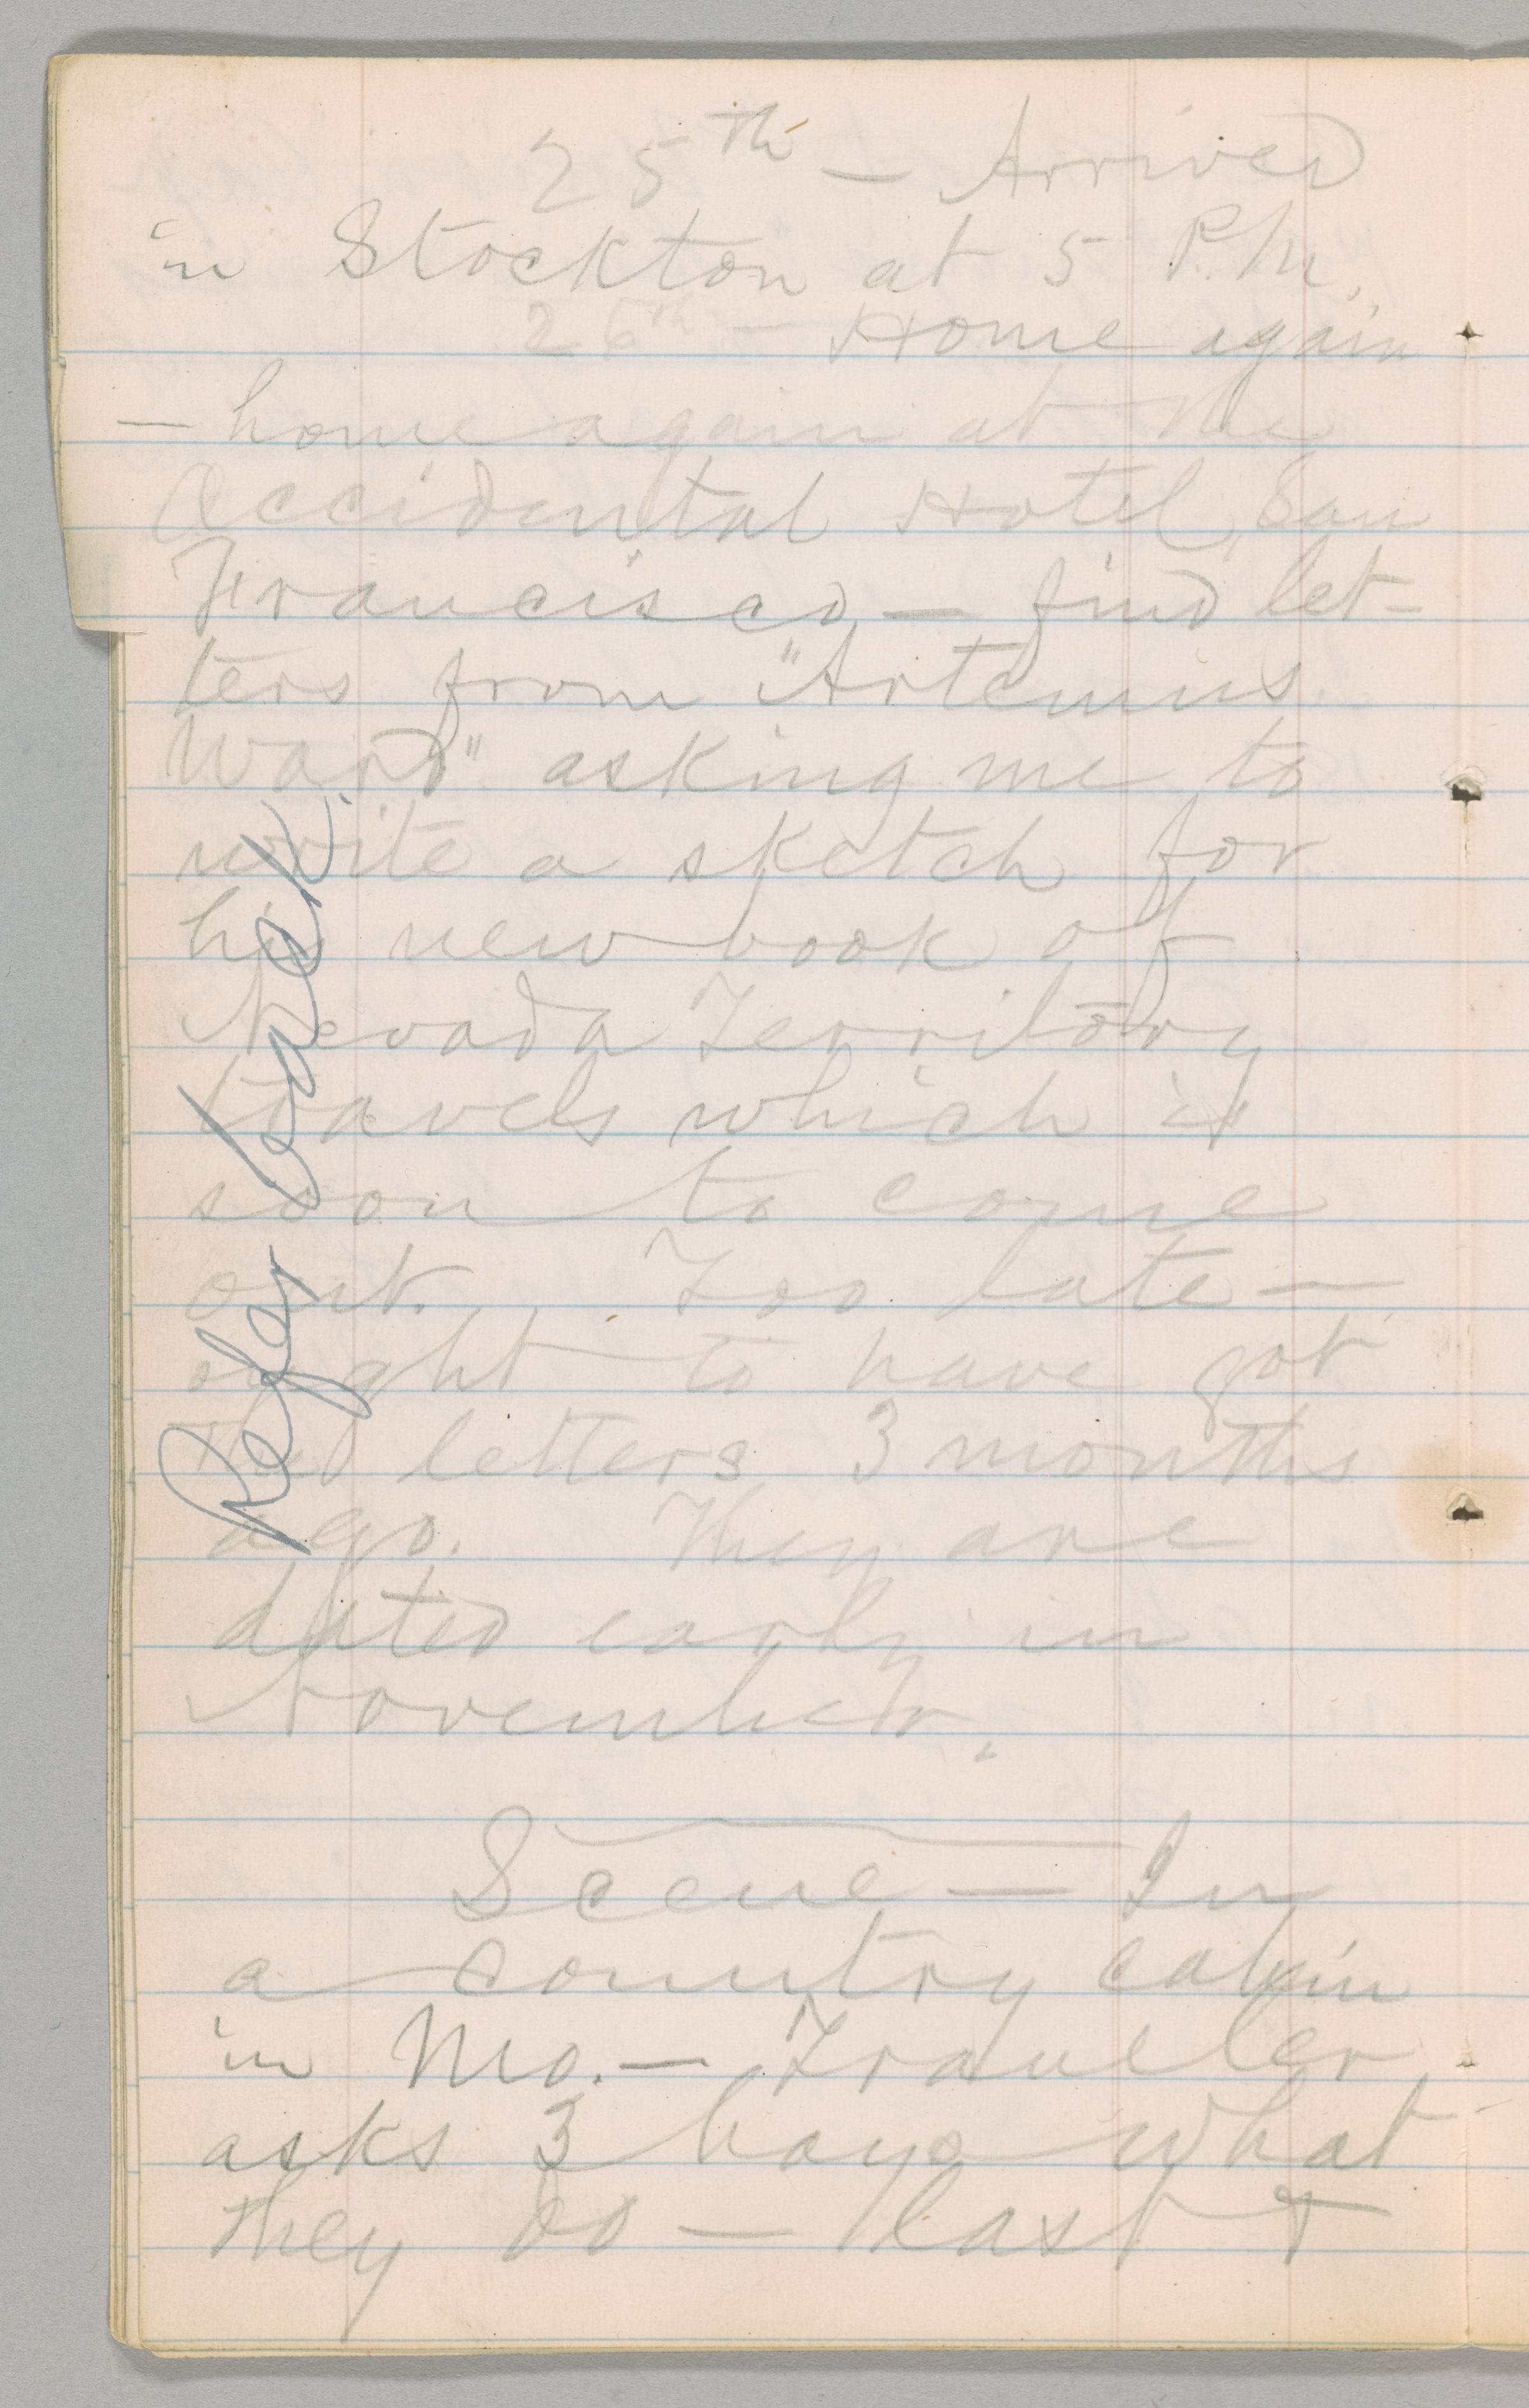 25th — Arrived
in Stockton at 5 P.M.
26th — Home again
— home again at the
Occidental Hotel, San
Francisco — find let-
ters from "Artemus
Ward" asking me to
write a sketch for
his new book of
Nevada Territory
travels which is
soon to come
out. Too late —
ought to have got
the letters 3 months
ago. They are
dated early in
November.
Scene — In
a country cabin
in Mo. — Traveler
asks 3 boys what
they do — last &
Refer back